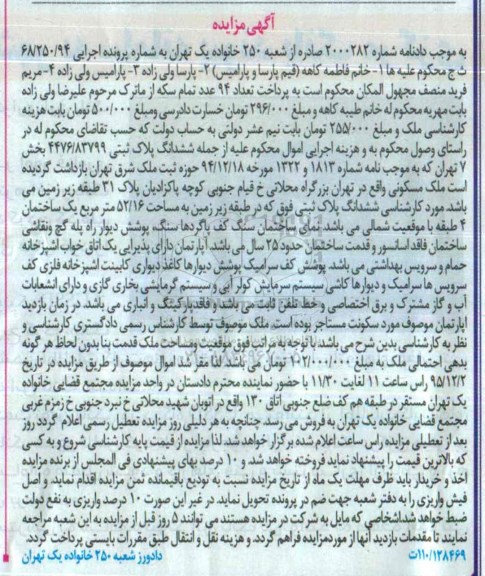 آگهی مزایده
به موجب دادنامه شماره ۲۰۰۰۲۸۲ صادره از شعبه ۲۵۰ خانواده یک تهران به شماره پرونده اجرایی ۶۸/۲۵۰/۹۴
ث ج محکوم علیه ها ۱- خانم فاطمه کاهه (قیم پارسا و پارامیس) ۲- پارسا ولی زاده ۳- پارامیس ولی زاده ۴- مریم
فرید منصف مجهول المکان محکوم است به پرداخت تعداد ۹۴ عدد تمام سکه از ماترک مرحوم علیرضا ولی زاده
بابت مهریه محکوم له خانم طیبه کاهه و مبلغ ۲۹۶/۰۰۰ تومان خسارت دادرسی ومبلغ ۵۰۰/۰۰۰ تومان بابت هزینه
کارشناسی ملک و مبلغ ۲۵۵/۰۰۰ تومان بابت نیم عشر دولتی به حساب دولت که حسب تقاضای محکوم له در
راستای وصول محکوم به و هزینه اجرایی اموال محکوم علیه از جمله ششدانگ پلاک ثبتی ۴۴۷۶/۸۳۷۹۹ بخش
۷ تهران که به موجب نامه شماره ۱۸۱۳ و ۱۳۲۲ مورخه ۹۴/۱۲/۱۸ حوزه ثبت ملک شرق تهران بازداشت گردیده
است ملک مسکونی واقع در تهران بزرگراه محلاتی خ قیام جنوبی کوچه پاکزادیان پلاک ۳۱ طبقه زیر زمین می
باشد مورد کارشناسی ششدانگ پلاک ثبتی فوق که در طبقه زیر زمین به مساحت ۵۲/۱۶ متر مربع یک ساختمان
۴ طبقه با موقعیت شمالی می باشد نمای ساختمان سنگ کف پاگردها سنگ، پوشش دیوار راه پله گچ ونقاشی
ساختمان فاقد آسانسور و قدمت ساختمان حدود ۲۵ سال می باشد. آپارتمان دارای پذیرایی یک اتاق خواب آشپزخانه
حمام و سرویس بهداشتی می باشد پوشش کف سرامیک پوشش دیوارها کاغذ دیواری کابینت آشپزخانه فلزی کف
سرویس ها سرامیک و دیوارها کاشی سیستم سرمایش کولر آبی و سیستم گرمایشی بخاری گازی و دارای انشعابات
آب و گاز مشترک و برق اختصاصی و خط تلفن ثابت می باشد و فاقد پارکینگ و انباری می باشد. در زمان بازدید
آپارتمان موصوف مورد سکونت مستاجر بوده است. ملک موصوف توسط کارشناس رسمی دادگستری کارشناسی و
نظریه کارشناسی بدین شرح می باشد: با توجه به مراتب فوق موقعیت ومساحت ملک قدمت بنا بدون لحاظ هر گونه
بدهی احتمالی ملک به مبلغ ۱۰۲/۰۰۰/۰۰۰ تومان می باشد لذا مقرر شد اموال موصوف از طریق مزایده در تاریخ
۹۵/۱۲/۲ راس ساعت ۱۱ لغایت ۱۱/۳۰ با حضور نماینده محترم دادستان در واحد مزایده مجتمع قضایی خانواده
یک تهران مستقر در طبقه هم کف ضلع جنوبی اتاق ۱۳۰ واقع در اتوبان شهید محلاتی خ نبرد جنوبی خ زمزم غربی
مجتمع قضایی خانواده یک تهران به فروش می رسد. چنانچه به هر دلیلی روز مزایده تعطیل رسمی اعلام گردد روز
بعد از تعطیلی مزایده راس ساعت اعلام شده برگزار خواهد شد. لذا مزایده از قیمت پایه کارشناسی شروع و به کسی
که بالاترین قیمت را پیشنهاد نماید فروخته خواهد شد و ۱۰ درصد بهای پیشنهادی فی المجلس از برنده مزایده
اخذ و خریدار باید ظرف مهلت یک ماه از تاریخ مزایده نسبت به تودیع باقیمانده ثمن مزایده اقدام نماید و اصل
فیش واریزی را به دفتر شعبه جهت ضم در پرونده تحویل نماید. در غیر این صورت ۱۰ درصد واریزی به نفع دولت
ضبط خواهد شد.اشخاصی که مایل به شرکت در مزایده هستند می توانند ۵ روز قبل از مزایده به این شعبه مراجعه
نمایند تا مقدمات بازدید آنها از موردمزایده فراهم گردد. و هزینه نقل و انتقال طبق مقررات بایستی پرداخت گردد.
۱۱۰/۱۲۸۴۶۹ت دادورز شعبه ۲۵۰ خانواده یک تهران